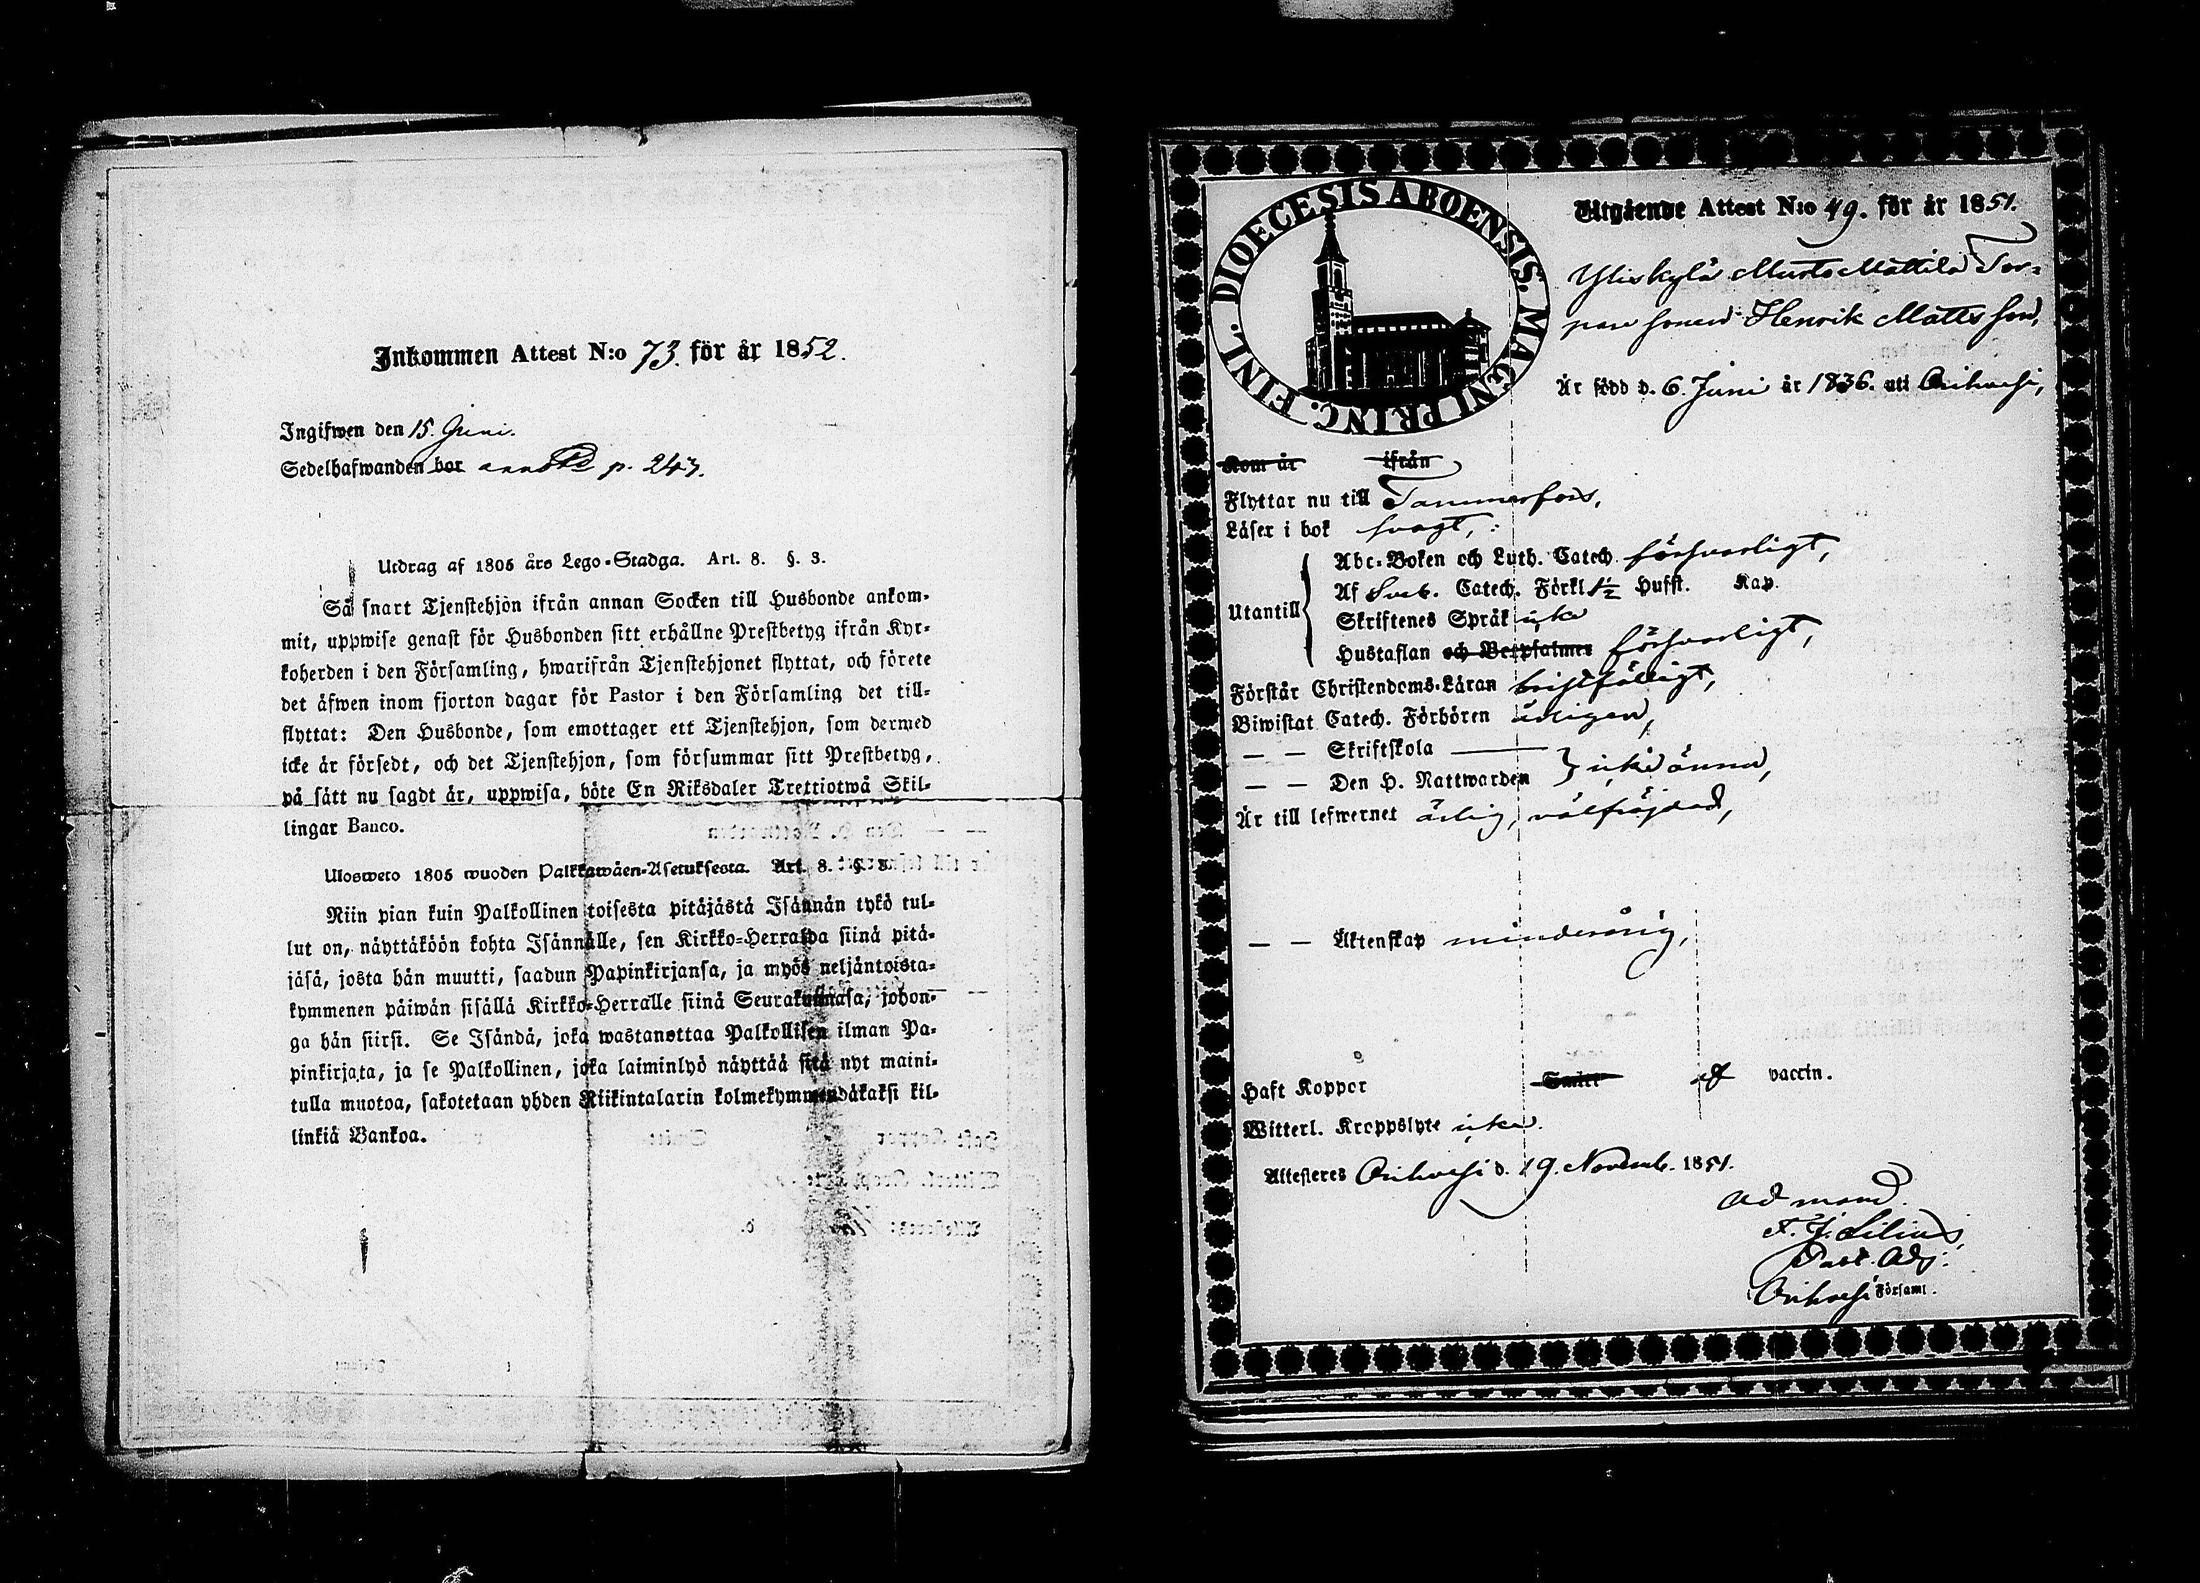 Inkommen Attest N:o 73. för år 1852.
Ingifwen den 15. Juni.
Sedelhafwanden bor p. 243.
Utdrag af 1805 års Lego-Stadga. Art. 8. §. 3.
Så snart Tjenstehjon ifrån annan Socken till Husbonde ankom-
mit, uppwise genast för Husbonden sitt erhållne Prestbetyg ifrån Kyr-
koherden i den Församling, hwarifrån Tjenstehjonet flyttat, och förete
det äfwen inom fjorton dagar för Pastor i den Församling det till-
flyttat: Den Husbonde, som emottager ett Tjenstehjon, som dermed
icke är försedt, och det Tjenstehjon, som försummar sitt Prestbetyg,
på sätt nu sagdt är, uppwisa, böte En Riksdaler Trettiotwå Skil-
lingar Banco.
Ulosweto 1805 wuoden Palkkawäen-Asetuksesta. Art. 8. §. 3.
Niin pian kuin Palkollinen toisesta pitäjästä Isännän tykö tul-
lut on, näyttäköön kohta Isännälle, sen Kirkko-Herralda siinä pitä-
jäsä, josta hän muutti, saadun Papinkirjansa, ja myös neljäntoista-
kymmenen päiwän sisällä Kirkko-Herralle siinä Seurakunnasa, johon-
ga hän siirsi. Se Isändä, joka wastanottaa Palkollisen ilman Pa-
pinkirjata, ja se Palkollinen, joka laiminlyö näyttää sitä nyt maini-
tulla muotoa, sakotetaan yhden Riikintalarin kolmekymmendäkaksi kil-
linkiä Bankoa.
DIOECESIS ABOENSIS. MAGNI PRINC. FINL.
Utgående Attest N:o 49. för år 1851.
Yliskylä Murto Mattila Tor-
pare sonen Henrik Matts son,
Är född d. 6. Juni år 1836. uti Orihvesi,
Kom år ifrån
Flyttar nu till Tammerfors,
Läser i bok svagt,
Utantill
Abc-Boken och Luth. Catech. försvarligt,
Af Sveb. Catech. Förkl. 1/2 Hufst. Kap.
Skriftenes Språk icke
Hustaflan och Botpsalmer försvarligt,
Förstår Christendoms-Läran bristfälligt,
Biwistat Catech. Förhören årligen,
— — Skriftskola
— — Den H. Nattwarden } icke ännu,
Är till lefwernet ärlig, välfrejdad,
— — Äktenskap minderårig,
Haft Koppor Smitt af vaccin.
Witterl. Kroppslyte icke.
Attesteres Orihvesi d. 19. Novemb. 1851.
Ad mand.
F. J. Lilius,
Past. Adj:
Orihvesi Församl.